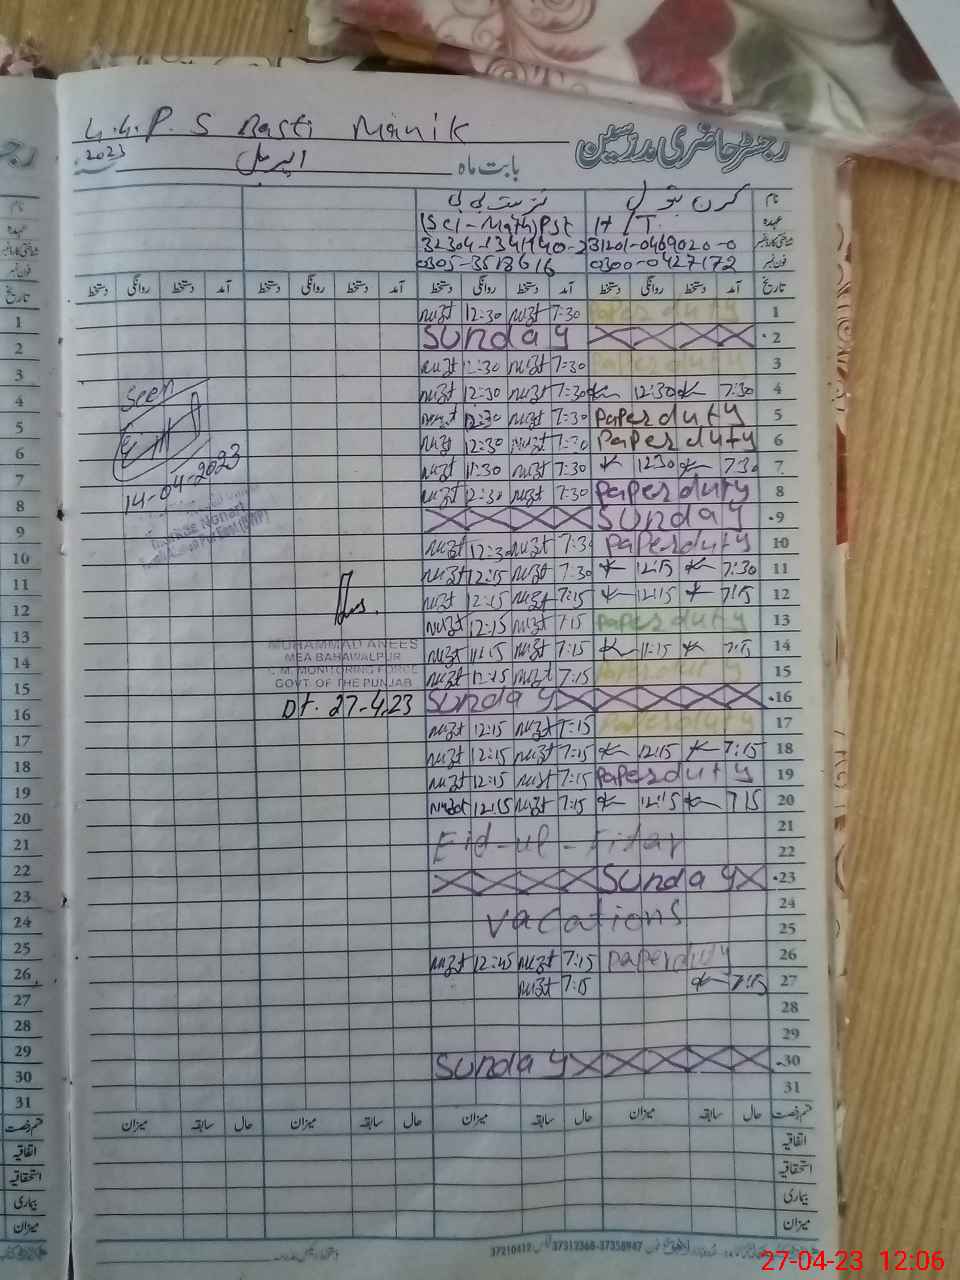 G.G.P.S Basti Manik
رجسٹر حاضری مدرسین
بابت ماہ اپریل 2023
نام کرن بتول نزہت بی بی
عہدہ H/T. (Sci-Math) PST
شناختی کارڈ نمبر 31201-0469020-0 32304-1341140-2
فون نمبر 0300-0427172 0305-3518616
تاریخ آمد دستخط روانگی دستخط آمد دستخط روانگی دستخط آمد دستخط روانگی دستخط آمد دستخط روانگی دستخط
1 Paper duty 7:30 nuzt 12:30 nuzt
2 Sunday
3 Paper duty 7:30 nuzt 12:30 nuzt
4 7:30 12:30 7:30 nuzt 12:30 nuzt
5 Paper duty 7:30 nuzt 12:30 nuzt
6 Paper duty 7:30 nuzt 12:30 nuzt
7 7:30 12:30 7:30 nuzt 11:30 nuzt
8 Paper duty 7:30 nuzt 12:30 nuzt
9 Sunday
10 Paper duty 7:30 nuzt 12:30 nuzt
11 7:30 12:15 7:30 nuzt 12:15 nuzt
12 7:15 12:15 7:15 nuzt 12:15 nuzt
13 Paper duty 7:15 nuzt 12:15 nuzt
14 7:15 11:15 7:15 nuzt 11:15 nuzt
15 Paper duty 7:15 nuzt 12:15 nuzt
16 Sunday
17 Paper duty 7:15 nuzt 12:15 nuzt
18 7:15 12:15 7:15 nuzt 12:15 nuzt
19 Paper duty 7:15 nuzt 12:15 nuzt
20 7:15 12:15 7:15 nuzt 12:15 nuzt
21
Eid-ul-Fitar
22
23 Sunday
24
vacations
25
26 Paper duty 7:15 nuzt 12:45 nuzt
27 7:15 7:15 nuzt
28
29
30 Sunday
31
Seen
14-04-2023
MUHAMMAD ANEES
MEA BAHAWALPUR
C.M. MONITORING FORCE
GOVT. OF THE PUNJAB
Dt. 27-4-23
قسم رخصت حال سابقہ میزان حال سابقہ میزان حال سابقہ میزان حال سابقہ میزان
اتفاقیہ
استحقاقیہ
بیماری
میزان
37210412 37312368-37358947
27-04-23 12:06